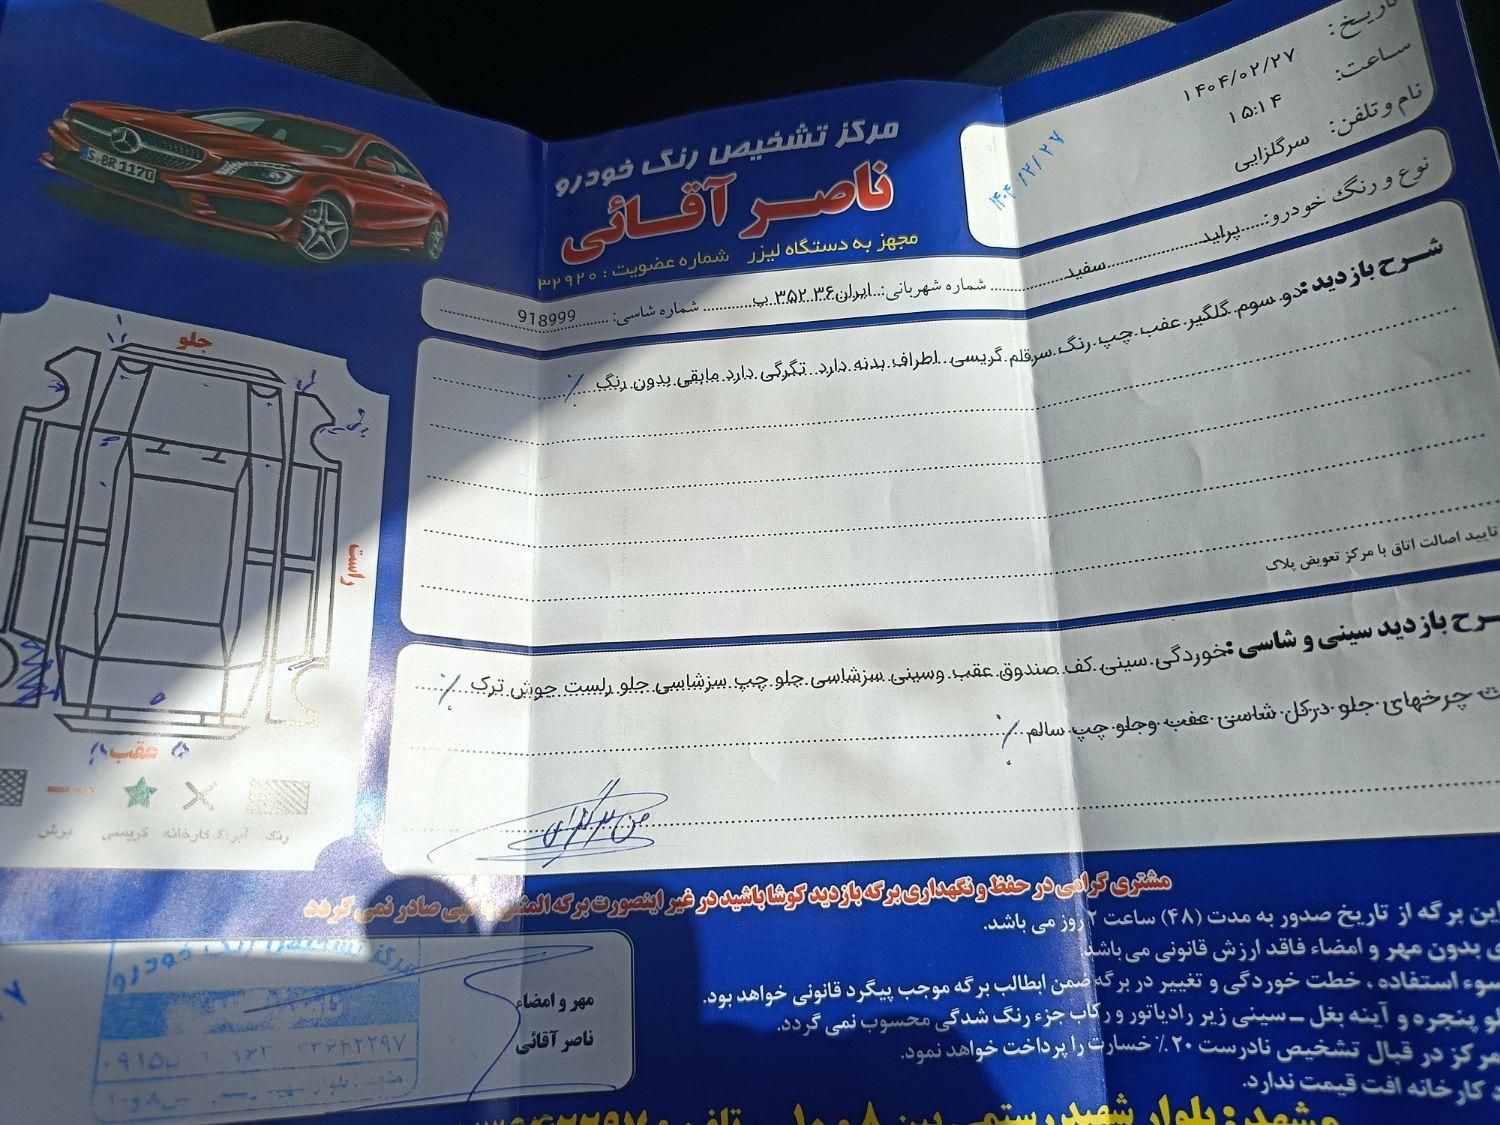 تاریخ: ۱۴۰۴/۰۲/۲۷
ساعت: ۱۵:۱۴
نام و تلفن: سرگلزایی
۱۴۰۴/۲/۲۷
مرکز تشخیص رنگ خودرو
ناصر آقائی
مجهز به دستگاه لیزر شماره عضویت : ۳۲۹۲۰
S BR 1170
نوع و رنگ خودرو: پراید سفید شماره شهربانی: ایران ۳۶ ۳۵۲ ب شماره شاسی: 918999
شرح بازدید: دو سوم گلگیر عقب چپ رنگ سرقلم گریسی اطراف بدنه دارد تگرگی دارد مابقی بدون رنگ ٪
تایید اصالت اتاق با مرکز تعویض پلاک
ـرح بازدید سینی و شاسی: خوردگی سینی کف صندوق عقب وسینی سرشاسی جلو چپ سرشاسی جلو راست جوش ترک ٪
ت چرخهای جلو درکل شاسی عقب وجلو چپ سالم ٪
جلو
راست
عقب
رنگ
آبرنگ کارخانه
گریسی
برش
مشتری گرامی در حفظ و نگهداری برگه بازدید کوشا باشید در غیر اینصورت برگه المثنی صادر نمی گردد
این برگه از تاریخ صدور به مدت (۴۸) ساعت ۲ روز می باشد.
ی بدون مهر و امضاء فاقد ارزش قانونی می باشد.
سوء استفاده ، خطت خوردگی و تغییر در برگه ضمن ابطالب برگه موجب پیگرد قانونی خواهد بود.
لو پنجره و آینه بغل – سینی زیر رادیاتور و رکاب جزء رنگ شدگی محسوب نمی گردد.
مرکز در قبال تشخیص نادرست ۲۰٪ خسارت را پرداخت خواهد نمود.
د کارخانه افت قیمت ندارد.
مهر و امضاء
ناصر آقائی
مرکز تشخیص رنگ خودرو
مشهد: بلوار شهید رستمی بین ۸ و ۱۰ – تلفن